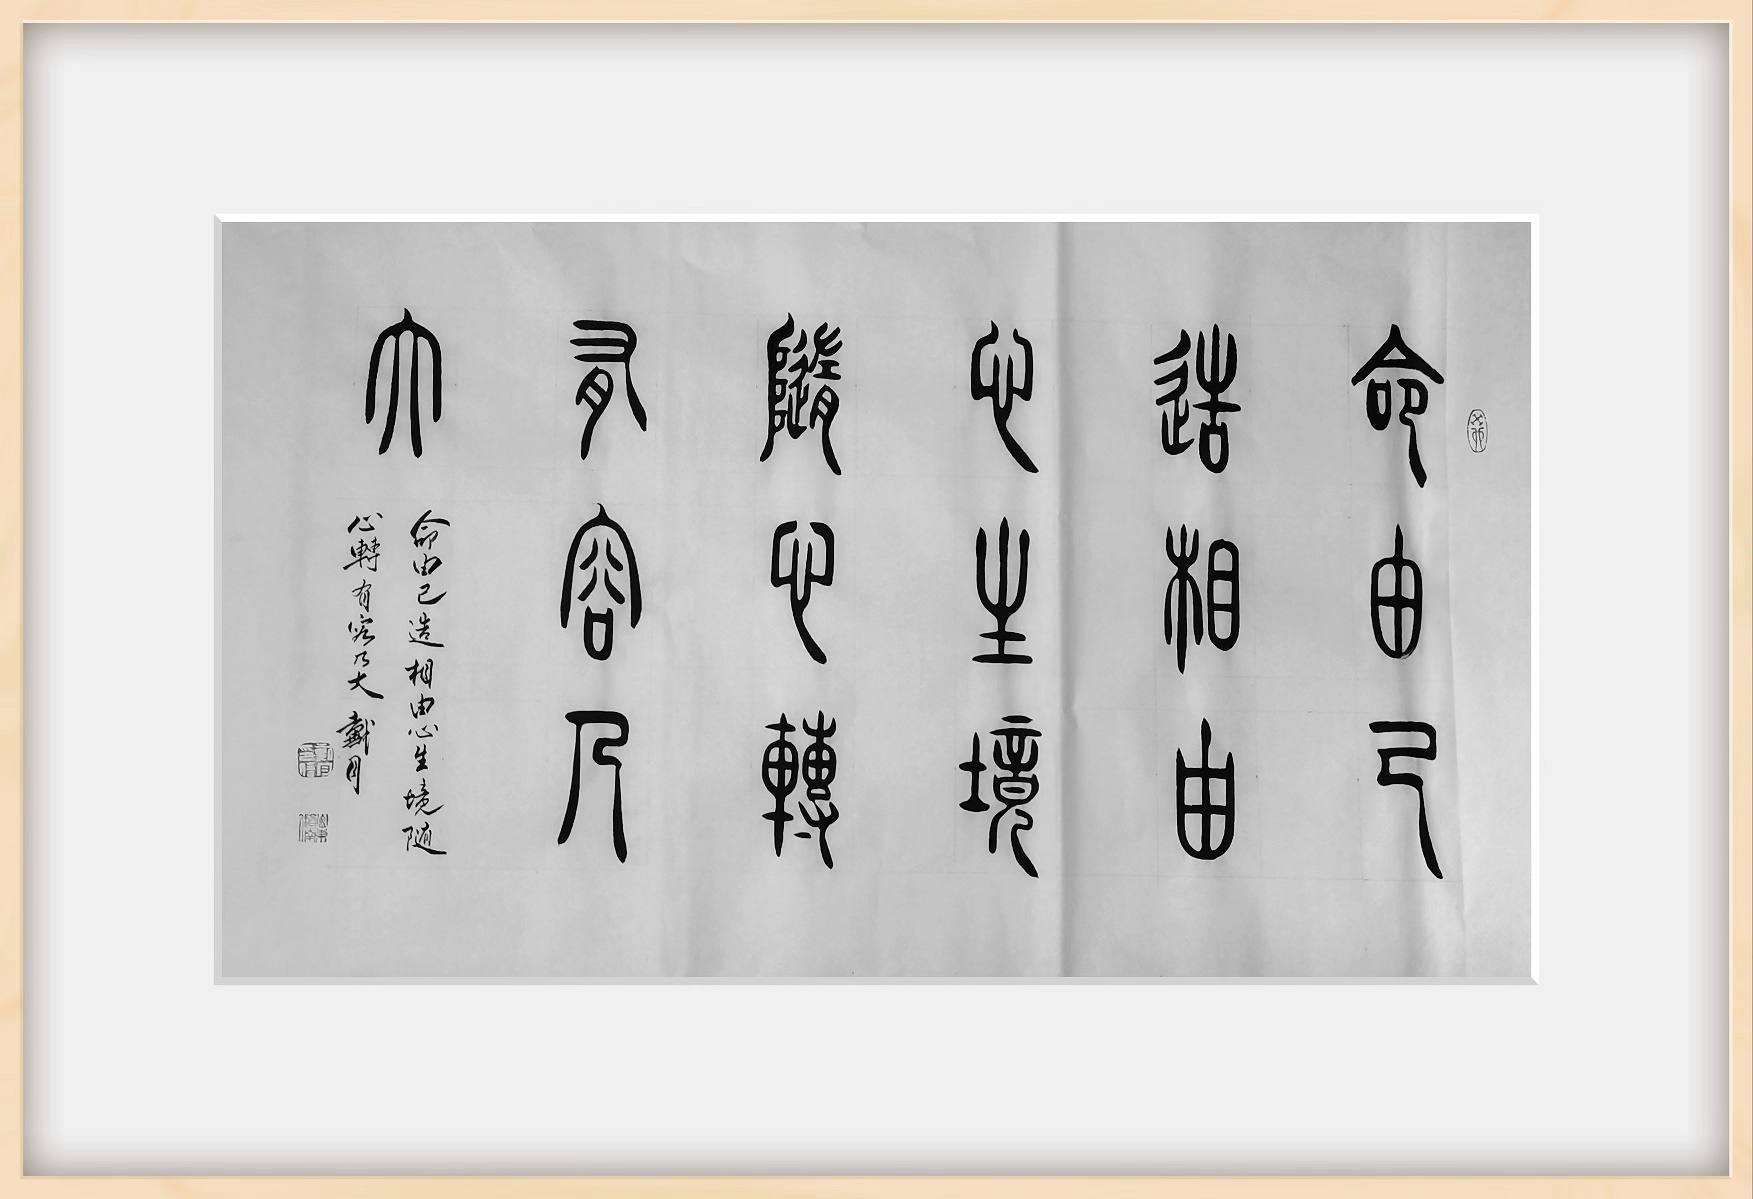 命由己
造相由
心生境
隨心轉
有容乃
大
命由己造相由心生境随
心轉有容乃大 戴月